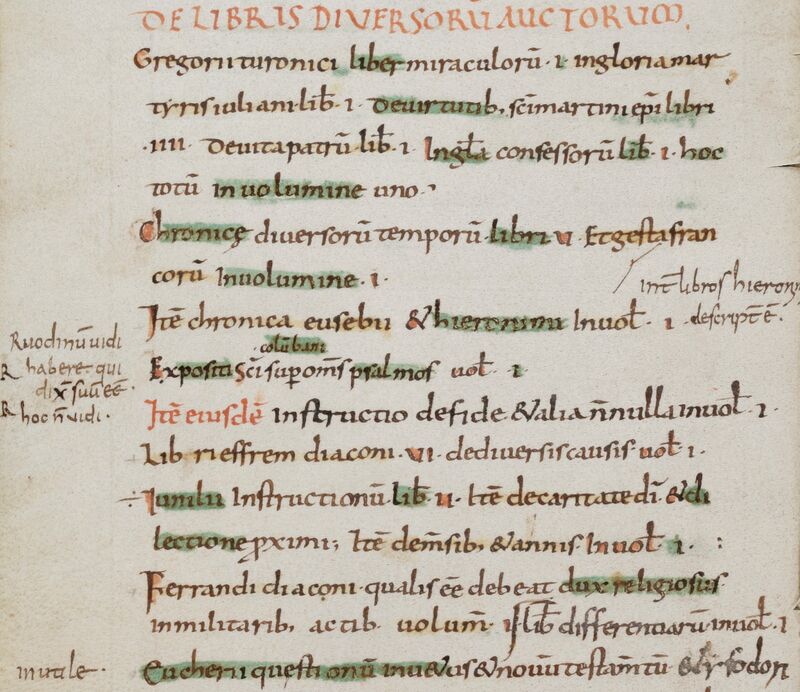 DE LIBRIS DIVERSORŪ AUCTORUM.
Gregorii turonici liber miraculorū · i · in gloria mar
tyris iuliani · lib̄ · i · De virtutib; sc̄i martini ep̄i libri
· iiii · De vita patrū lib̄ · i · In gl̄a confessorū lib̄ · i · hoc
totū in volumine uno ·
Chronicę diversorū temporū libri vi · Et gesta fran
corū In volumine · i ·
int̄ libros hieronẏ
descript̄ ē ·
Itē chronica eusebii & hieronimi In vol̄ · i ·
Ruodinū vidi
habere qui
dix̄ suū eē
hoc n̄ vidi ·
colūbani
Expositi sc̄i sup om̄s psalmos vol̄ · i
Itē eiusdē instructio de fide & alia n̄nulla in vol̄ · i ·
Lib ri effrem diaconi · vi · de diversis causis vol̄ · i ·
÷ Iunilii Instructionū lib̄ · ii · Itē de caritate dī & di
lectione p̱ximi; Itē de m̄sib; & annis In vol̄ · i · :
Ferrandi diaconi · qualis eē debeat dux religiosus
in militarib; actib; volum̄ · i lib̄ differentiarū in vol̄ · i
in utile ·
Eucherii questionū in v&us & novū testam̄tū